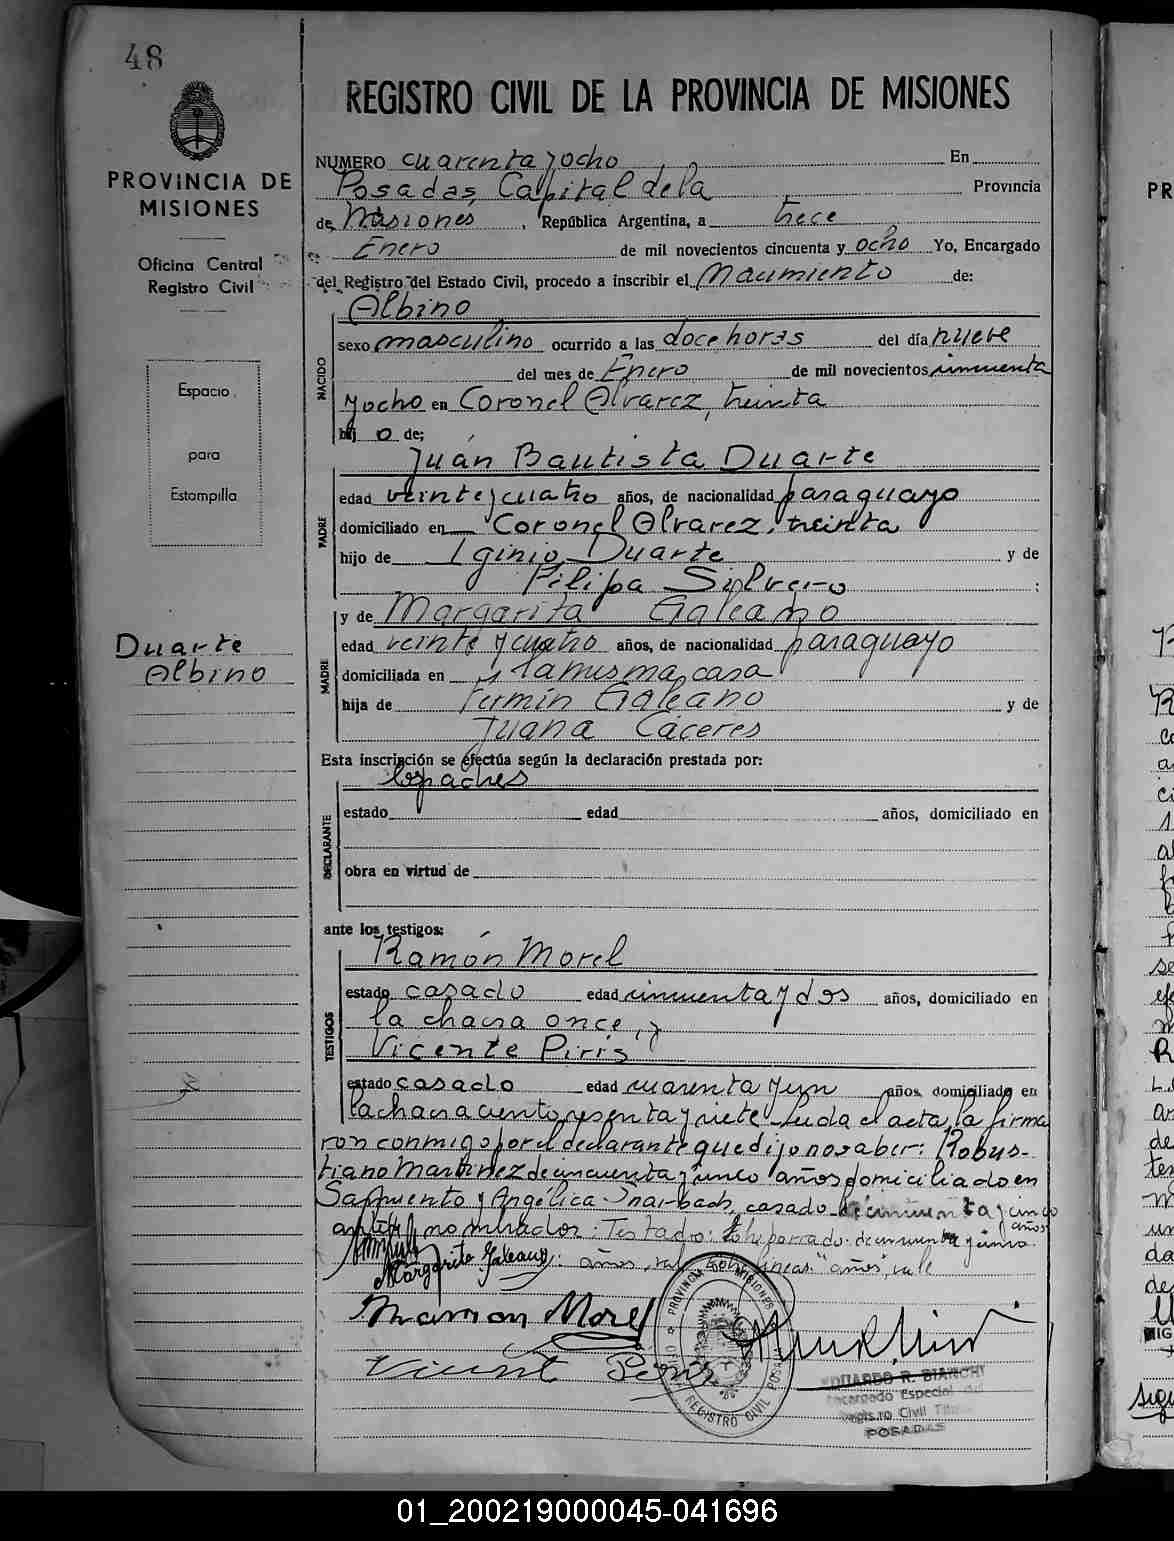 48
REGISTRO CIVIL DE LA PROVINCIA DE MISIONES
PROVINCIA DE
MISIONES
Oficina Central
Registro Civil
Espacio
para
Estampilla
Duarte
Albino
NUMERO cuarenta y ocho En
Posadas, Capital de la Provincia
de Misiones, República Argentina, a trece
Enero de mil novecientos cincuenta y ocho Yo, Encargado
del Registro del Estado Civil, procedo a inscribir el Nacimiento de:
Albino
NACIDO
sexo masculino ocurrido a las doce horas del día nueve
del mes de Enero de mil novecientos cincuenta
y ocho en Coronel Alvarez, treinta
hij o de;
Juán Bautista Duarte
PADRE
edad veinte y cuatro años, de nacionalidad paraguayo
domiciliado en Coronel Alvarez, treinta
hijo de Iginio Duarte y de
Filipa Silvero ;
y de Margarita Galeano
MADRE
edad veinte y cuatro años, de nacionalidad paraguayo
domiciliada en la misma casa
hija de Fermín Galeano y de
Juana Cáceres
Esta inscripción se efectúa según la declaración prestada por:
los padres
DECLARANTE
estado edad años, domiciliado en
obra en virtud de
ante los testigos:
Ramón Morel
TESTIGOS
estado casado edad cincuenta y dos años, domiciliado en
la chacra once, y
Vicente Piris
estado casado edad cuarenta y un años domiciliado en
la chacra ciento sesenta y siete Leida el acta, la firma
ron conmigo por el declarante que dijo no saber: Robus-
tiano Martinez de cincuenta y cinco años domiciliado en
Sarmiento y Angélica casado de cincuenta y cinco
años
nominados: Testado: de cincuenta y cinco
Margarita Galeano: años, vale líneas "años, vale
Ramon Morel
Vicente Piris
PROVINCIA DE MISIONES
REGISTRO CIVIL POSADAS
EDUARDO R. BIANCHI
Encargado Especial del
Registro Civil
POSADAS
01_200219000045-041696